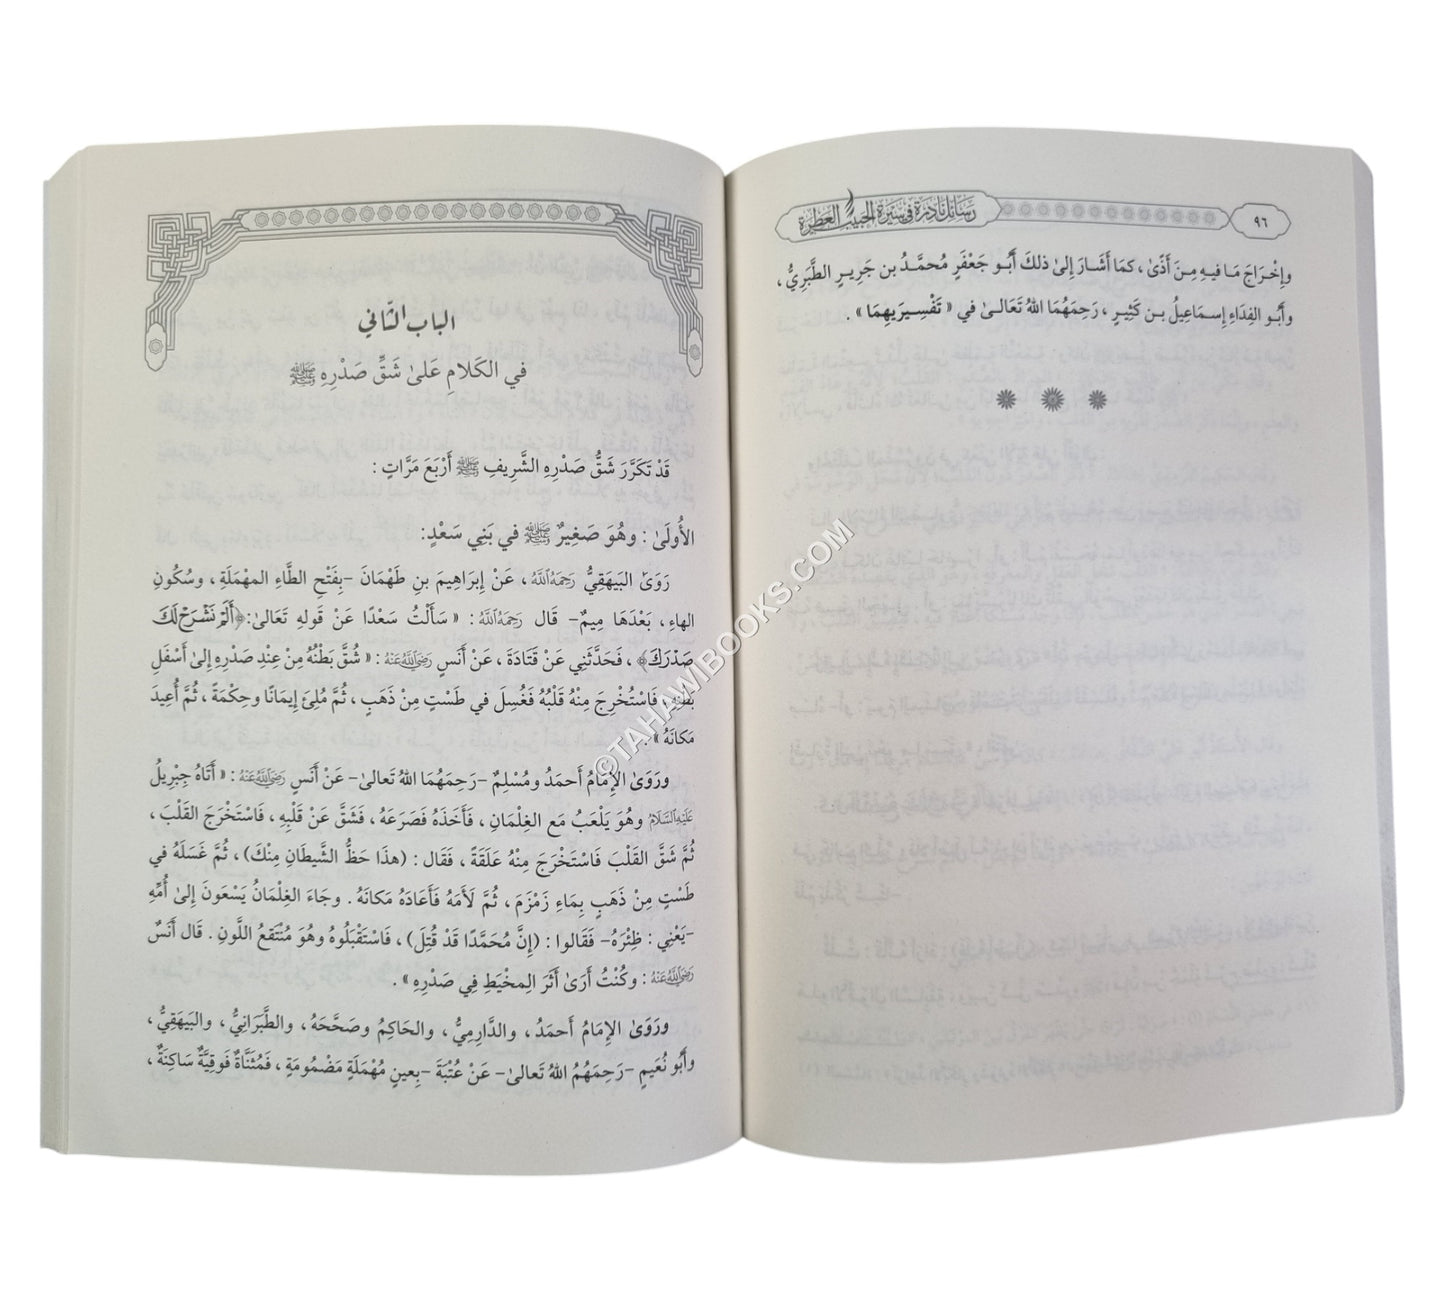 ٩٦
رسائل نادرة في سيرة الحبيب العطرة
وإخْرَاجَ مَا فيهِ مِنَ أَذَىٰ ، كمَا أَشَارَ إلىٰ ذلكَ أَبُو جَعْفَرٍ مُحمَّدُ بن جَرِيرٍ الطَّبَرِيُّ ،
وأَبُو الفِدَاءِ إسمَاعيلُ بن كَثِيرٍ ، رَحِمَهُمَا اللهُ تَعَالىٰ في « تَفْسِيَريهِمَا » .
الباب الثّاني
في الكَلامِ عَلىٰ شَقِّ صَدْرِهِ ﷺ
قَدْ تَكَرَّرَ شَقُّ صَدْرِهِ الشَّرِيفِ ﷺ أَرْبَعَ مَرَّاتٍ :
الأُولَىٰ : وهُوَ صَغِيرٌ ﷺ في بَنِي سَعْدٍ:
رَوَىٰ البَيهَقِيُّ رَحِمَهُ اللَّهُ ، عَنْ إبرَاهِيمَ بنِ طَهْمَانَ -بِفَتْحِ الطَّاءِ المهْمَلَةِ ، وسُكُونِ
الهاءِ ، بَعْدَهَا مِيمٌ- قَال رَحِمَهُ اللَّهُ : « سَأَلْتُ سَعْدًا عَنْ قَولهِ تَعَالىٰ:﴿أَلَمْ نَشْرَحْ لَكَ
صَدْرَكَ﴾ ، فَحَدَّثَنِي عَنْ قَتَادَةَ ، عَنْ أَنَسٍ رَضِيَ اللَّهُ عَنْهُ : « شُقَّ بَطْنُهُ مِنْ عِنْدِ صَدْرِهِ إلىٰ أَسْفَلِ
بَطْنِهِ ، فَاسْتُخْرِجَ مِنْهُ قَلْبُهُ فَغُسِلَ في طَسْتٍ مِنْ ذَهَبٍ ، ثُمَّ مُلِئَ إيمَانًا وحِكْمَةً ، ثُمَّ أُعِيدَ
مَكانَهُ » .
ورَوَىٰ الإمَامُ أَحمَدُ ومُسْلِمٌ -رَحِمَهُمَا اللهُ تَعَالىٰ- عَنْ أَنَسٍ رَضِيَ اللَّهُ عَنْهُ : « أَتَاهُ جِبْرِيلُ
عَلَيْهِ السَّلَامُ وهُوَ يَلْعَبُ مَع الغِلْمَانِ ، فَأَخَذَهُ فَصَرَعَهُ ، فَشَقَّ عَنْ قَلْبِهِ ، فَاسْتَخْرَجَ القَلْبَ ،
ثُمَّ شَقَّ القَلْبَ فَاسْتَخْرَجَ مِنْهُ عَلَقَةً ، فَقَالَ : (هذَا حَظُّ الشَّيطَانِ مِنْكَ) ، ثُمَّ غَسَلَهُ في
طَسْتٍ مِنْ ذَهَبٍ بِمَاءِ زَمْزَمَ ، ثُمَّ لَأَمَهُ فَأَعَادَهُ مَكانَهُ . وجَاءَ الغِلْمَانُ يَسْعَونَ إلىٰ أُمِّهِ
-يَعْنِي : ظِئْرَهُ- فَقَالوا : (إنَّ مُحَمَّدًا قَدْ قُتِلَ) ، فَاسْتَقْبَلُوهُ وهُوَ مُنْتَقعُ اللَّونِ . قَال أَنَسٌ
رَضِيَ اللَّهُ عَنْهُ : وكُنْتُ أَرَىٰ أَثَرَ المِخْيَطِ فِي صَدْرِهِ » .
ورَوَىٰ الإمَامُ أَحمَدُ ، والدَّارِمِيُّ ، والحَاكِمُ وصَحَّحَهُ ، والطَّبَرَانِيُّ ، والبَيهَقِيُّ ،
وأَبُو نُعَيمٍ -رَحِمَهُمُ اللهُ تَعَالىٰ- عَنْ عُتْبَةَ -بِعينٍ مُهْمَلَةٍ مَضْمُومَةٍ ، فَمُثَنَّاةٌ فَوقِيَّةٌ سَاكِنَةٌ ،
©TAHAWIBOOKS.COM